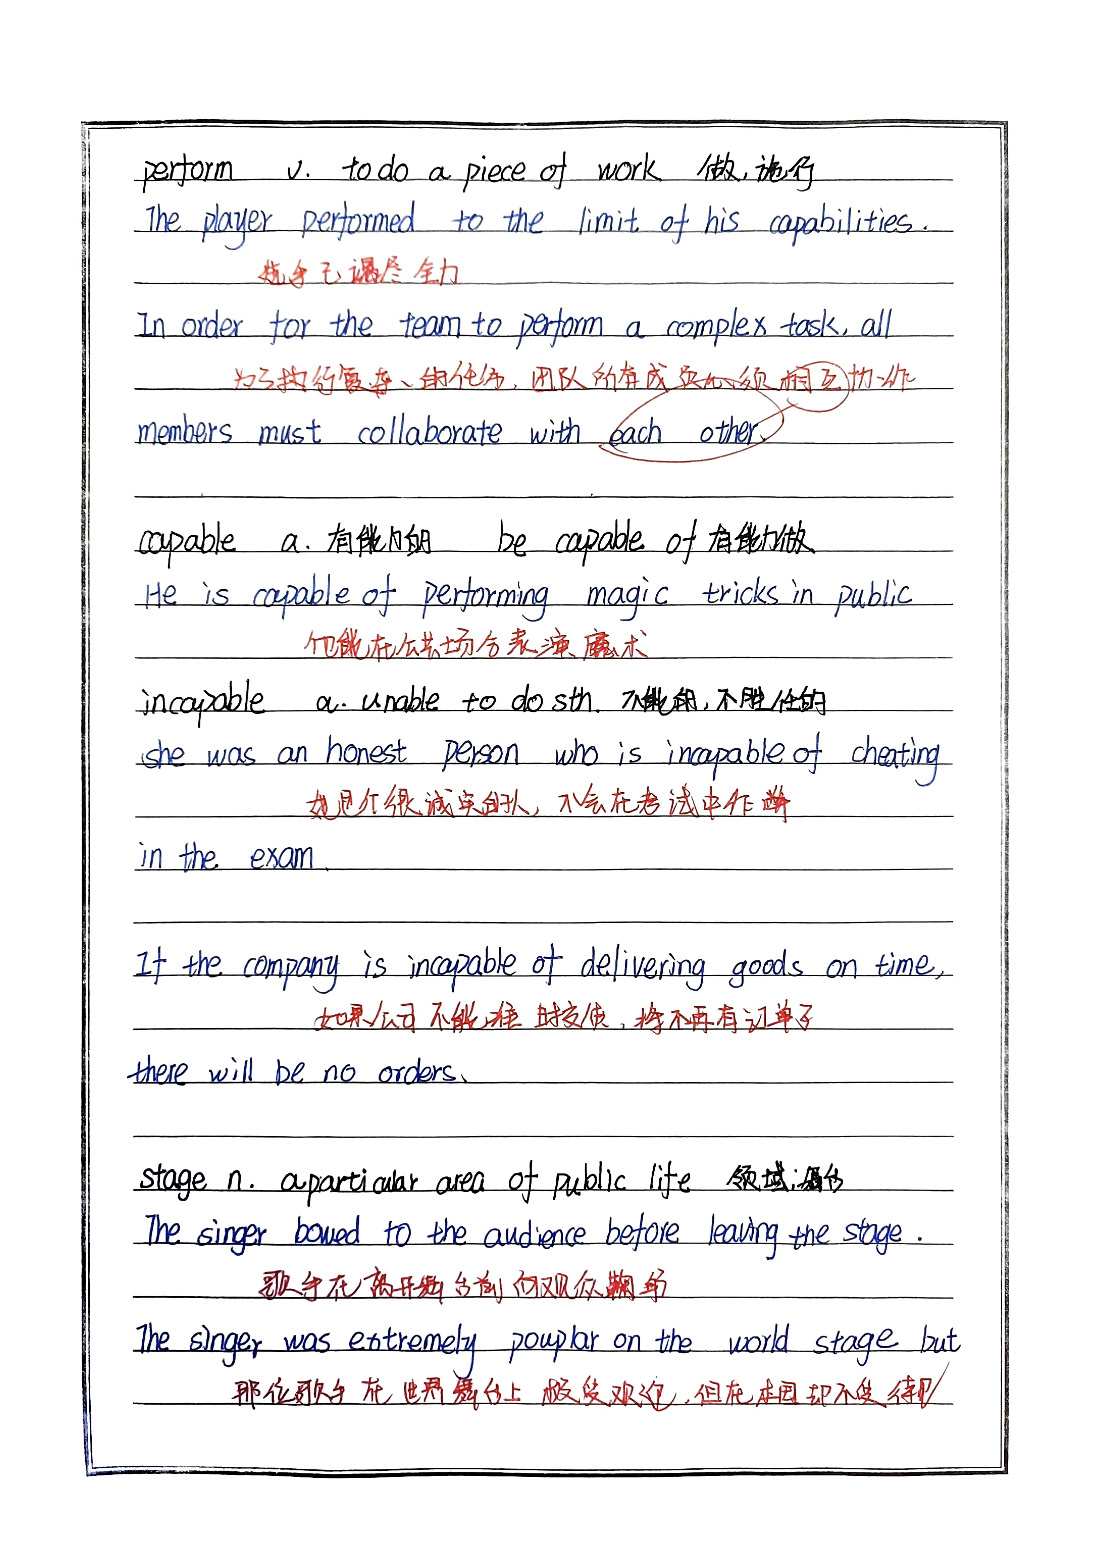 perform v. to do a piece of work 做，施行
The player performed to the limit of his capabilities.
选手已竭尽全力
In order for the team to perform a complex task, all
为了执行复杂、的任务，团队所有成员必须相互协作
members must collaborate with each other.
capable a. 有能力的 be capable of 有能力做
He is capable of performing magic tricks in public
他能在公共场合表演魔术
incapable a. unable to do sth. 不能的，不胜任的
she was an honest person who is incapable of cheating
她是个很诚实的人，不会在考试中作弊
in the exam.
If the company is incapable of delivering goods on time,
如果公司不能准时交货，将不再有订单了
there will be no orders.
stage n. a particular area of public life 领域；舞台
The singer bowed to the audience before leaving the stage.
歌手在离开舞台前向观众鞠躬
The singer was extremely pouplar on the world stage but
那位歌手在世界舞台上极受欢迎，但在本国却不受待见